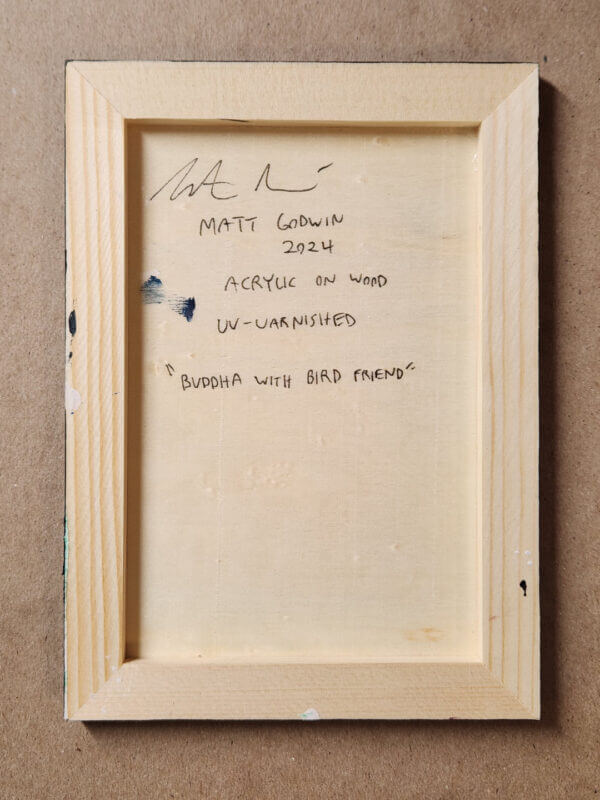 MATT GODWIN
2024
ACRYLIC ON WOOD
UV-VARNISHED
"BUDDHA WITH BIRD FRIEND"